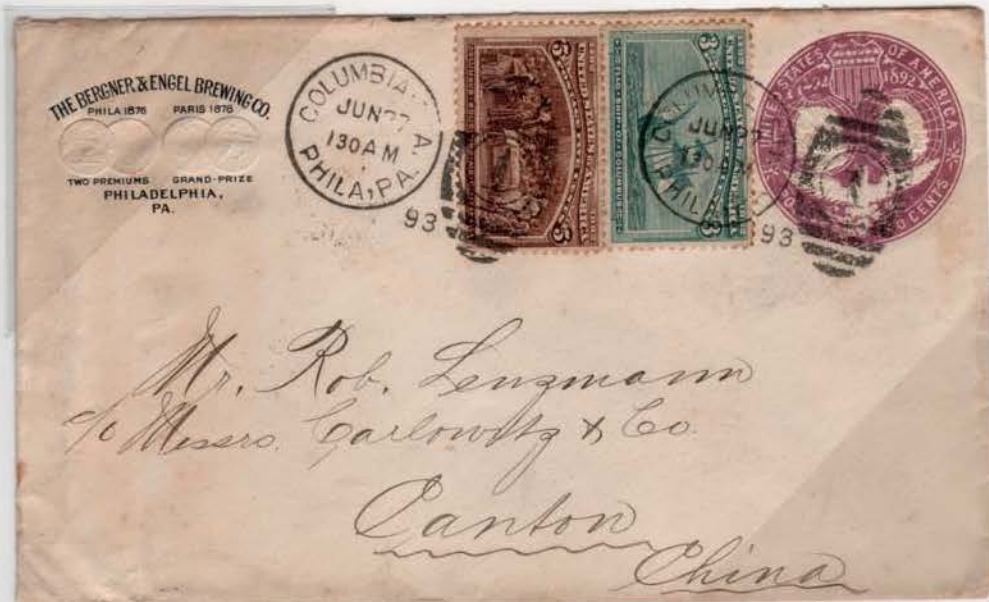 THE BERGNER & ENGEL BREWING CO.
PHILA 1876 PARIS 1878
TWO PREMIUMS GRAND-PRIZE
PHILADELPHIA,
PA.
COLUMBIA. A.
JUN 27
130AM
PHILA, PA.
93
5 5
3 3
JUN 27
130
PHILA
93
UNITED STATES OF AMERICA
1892
CENTS
Mr. Rob. Lenzmann
c/o Messrs. Carlowitz & Co.
Canton
China